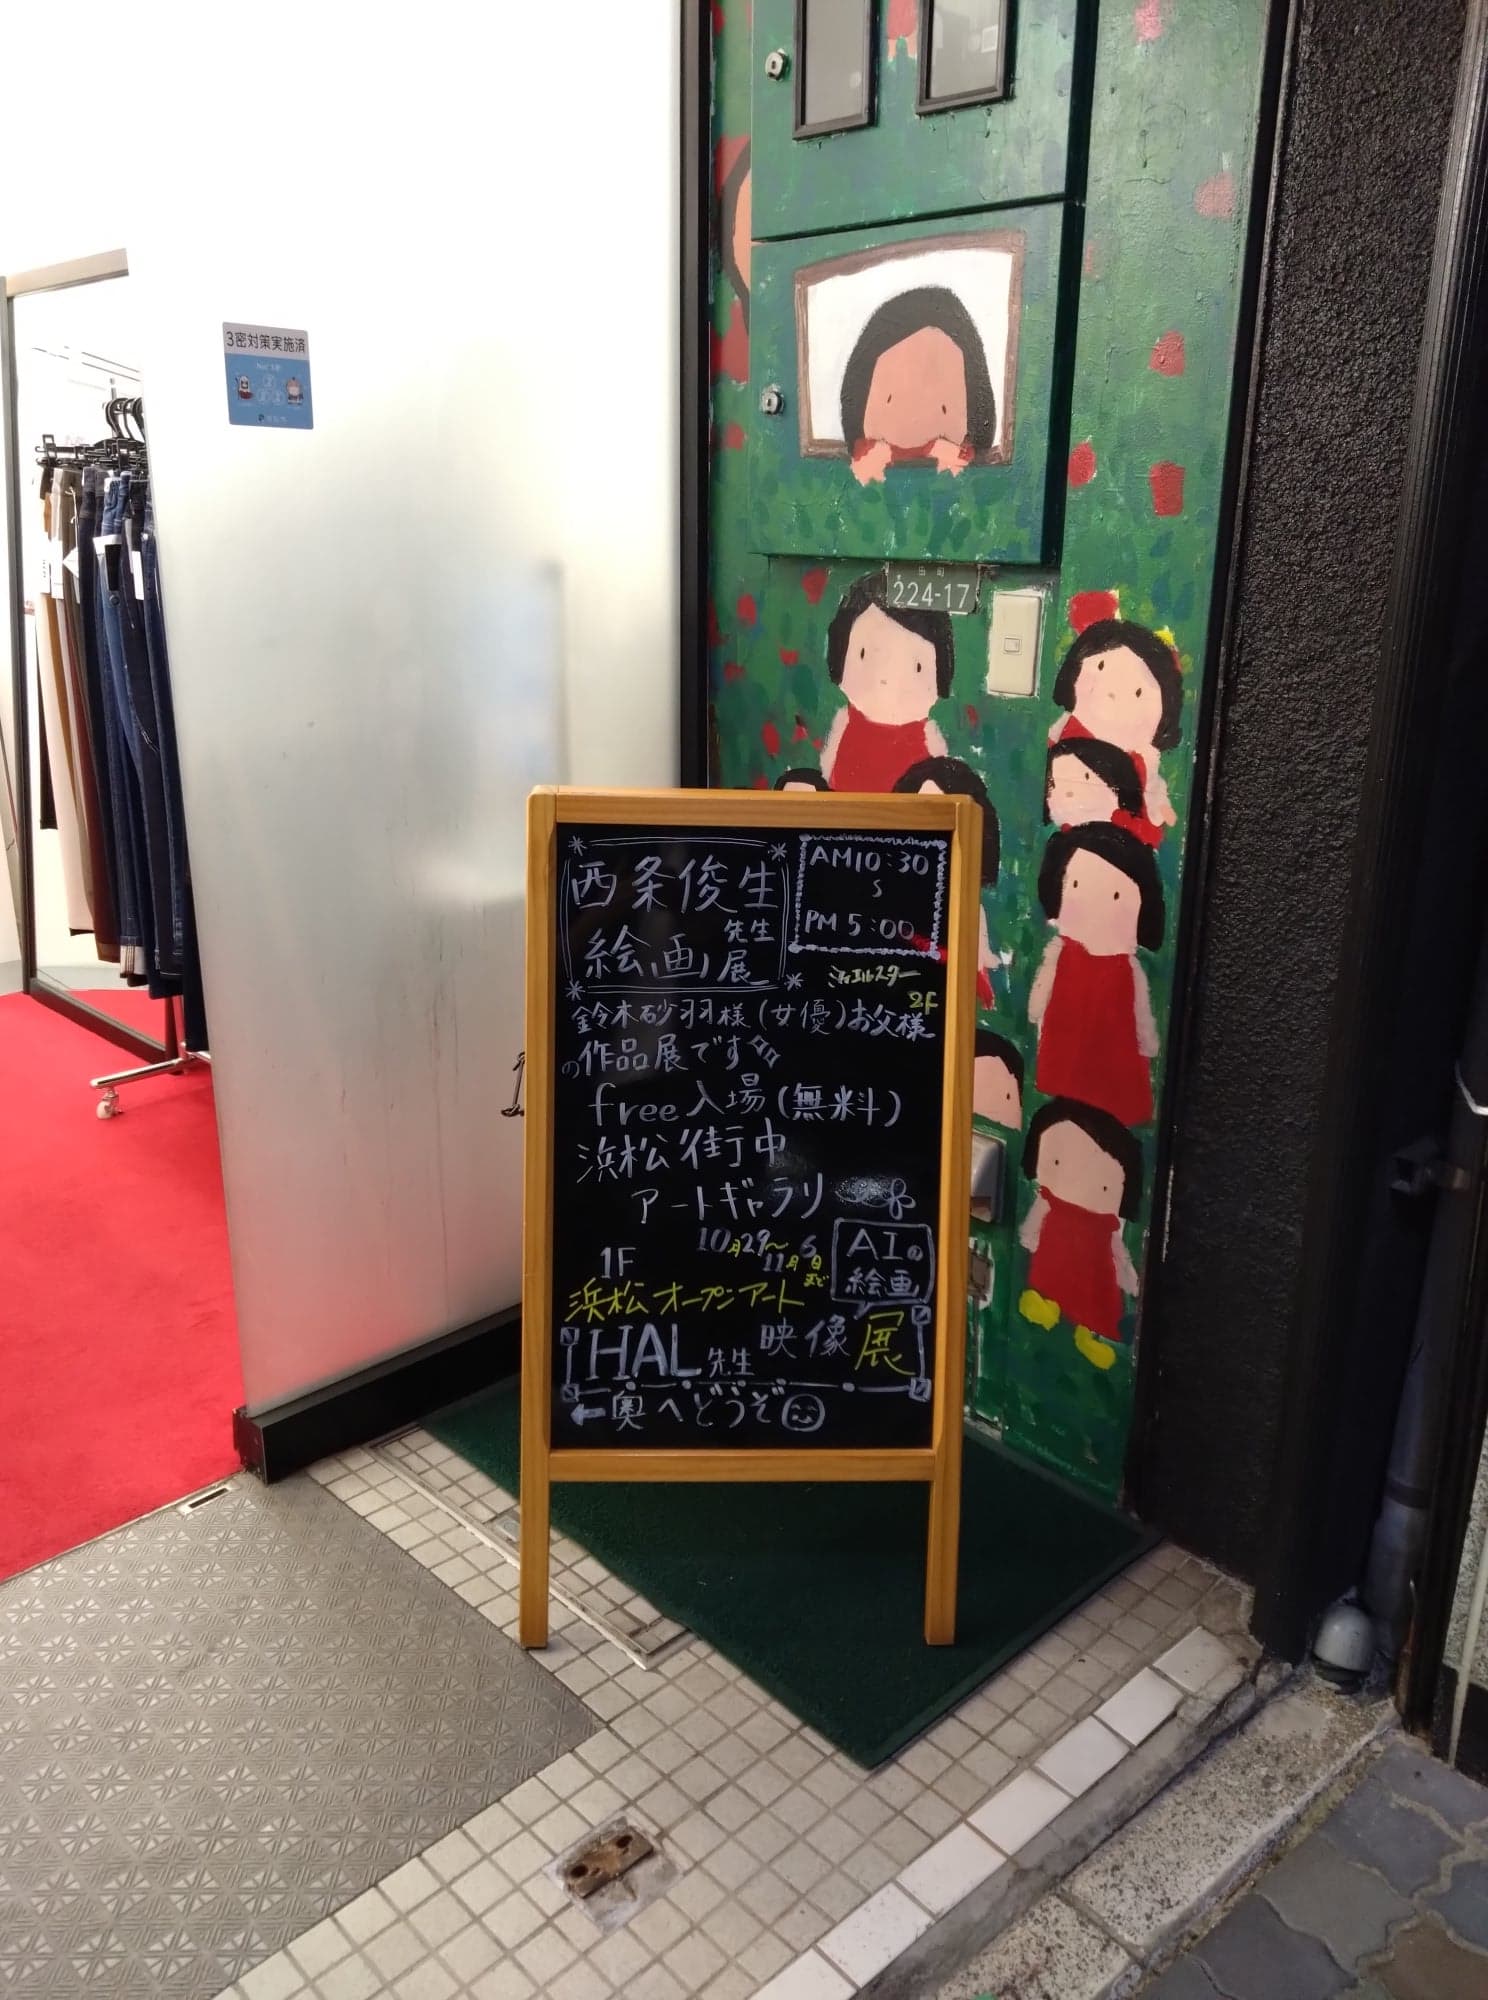 3密対策実施済
田町
224-17
西条俊生
先生
絵画展
AM10:30
~
PM 5:00
2F
鈴木砂羽様(女優)お父様
の作品展です
free入場(無料)
浜松街中
アートギャラリー
10月29~
11月6日まで
1F
AIの
絵画
浜松オープンアート
HAL先生 映像展
←奥へどうぞ